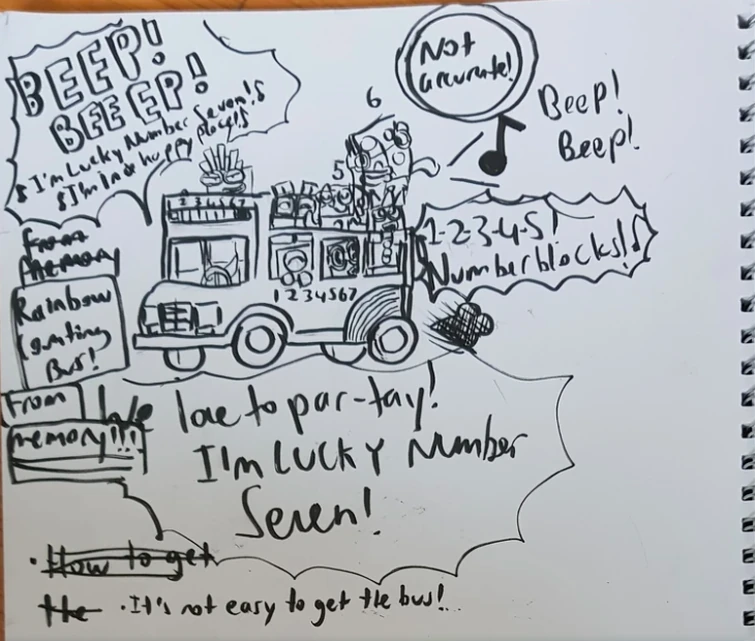 BEEP!
BEEEP!
I'm Lucky Number Seven!
I'm in a happy place!
Not
accurate!
Beep!
Beep!
6
5
1 2 3 4 5 6 7
1-2-3-4-5!
Numberblocks!
From
Memory
Rainbow
Counting
Bus!
From
memory!!!
1 2 3 4 5 6 7
We love to par-tay!
I'm LUCKY Number
Seven!
How to get
the
· It's not easy to get the bus!